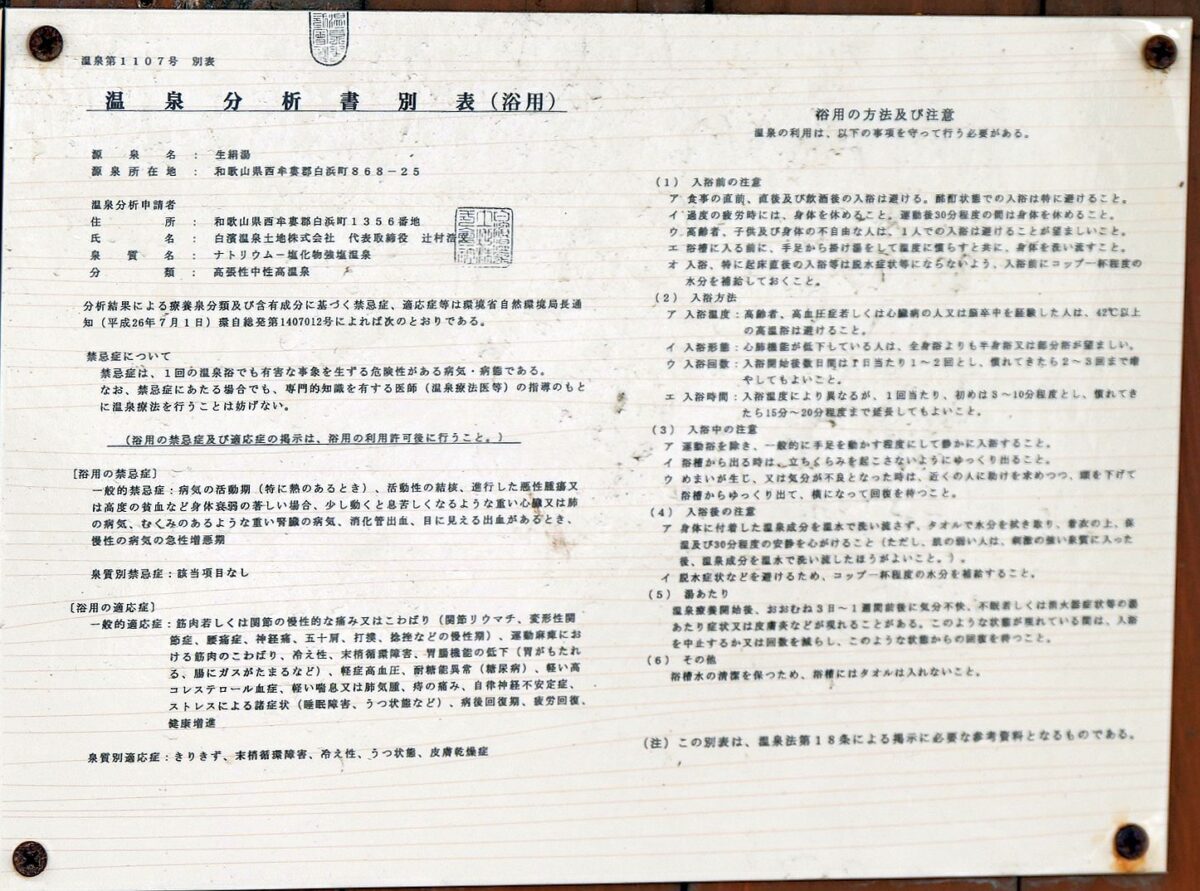 温泉第1107号 別表
温泉分析書別表(浴用)
源泉名 : 生絹湯
源泉所在地 : 和歌山県西牟婁郡白浜町868-25
温泉分析申請者
住所 : 和歌山県西牟婁郡白浜町1356番地
氏名 : 白濱温泉土地株式会社 代表取締役 辻村
泉質名 : ナトリウム-塩化物強塩温泉
分類 : 高張性中性高温泉
分析結果による療養泉分類及び含有成分に基づく禁忌症、適応症等は環境省自然環境局長通
知(平成26年7月1日)環自総発第1407012号によれば次のとおりである。
禁忌症について
禁忌症は、1回の温泉浴でも有害な事象を生ずる危険性がある病気・病態である。
なお、禁忌症にあたる場合でも、専門的知識を有する医師(温泉療法医等)の指導のもと
に温泉療法を行うことは妨げない。
(浴用の禁忌症及び適応症の掲示は、浴用の利用許可後に行うこと。)
[浴用の禁忌症]
一般的禁忌症:病気の活動期(特に熱のあるとき)、活動性の結核、進行した悪性腫瘍又
は高度の貧血など身体衰弱の著しい場合、少し動くと息苦しくなるような重い心臓又は肺
の病気、むくみのあるような重い腎臓の病気、消化管出血、目に見える出血があるとき、
慢性の病気の急性増悪期
泉質別禁忌症:該当項目なし
[浴用の適応症]
一般的適応症:筋肉若しくは関節の慢性的な痛み又はこわばり(関節リウマチ、変形性関
節症、腰痛症、神経痛、五十肩、打撲、捻挫などの慢性期)、運動麻痺にお
ける筋肉のこわばり、冷え性、末梢循環障害、胃腸機能の低下(胃がもたれ
る、腸にガスがたまるなど)、軽症高血圧、耐糖能異常(糖尿病)、軽い高
コレステロール血症、軽い喘息又は肺気腫、痔の痛み、自律神経不安定症、
ストレスによる諸症状(睡眠障害、うつ状態など)、病後回復期、疲労回復、
健康増進
泉質別適応症:きりきず、末梢循環障害、冷え性、うつ状態、皮膚乾燥症
浴用の方法及び注意
温泉の利用は、以下の事項を守って行う必要がある。
(1) 入浴前の注意
ア 食事の直前、直後及び飲酒後の入浴は避ける。酩酊状態での入浴は特に避けること。
イ 過度の疲労時には、身体を休めること。運動後30分程度の間は身体を休めること。
ウ 高齢者、子供及び身体の不自由な人は、1人での入浴は避けることが望ましいこと。
エ 浴槽に入る前に、手足から掛け湯をして温度に慣らすと共に、身体を洗い流すこと。
オ 入浴、特に起床直後の入浴等は脱水症状等にならないよう、入浴前にコップ一杯程度の
水分を補給しておくこと。
(2) 入浴方法
ア 入浴温度:高齢者、高血圧症若しくは心臓病の人又は脳卒中を経験した人は、42℃以上
の高温浴は避けること。
イ 入浴形態:心肺機能が低下している人は、全身浴よりも半身浴又は部分浴が望ましい。
ウ 入浴回数:入浴開始後数日間は1日当たり1~2回とし、慣れてきたら2~3回まで増
やしてもよいこと。
エ 入浴時間:入浴温度により異なるが、1回当たり、初めは3~10分程度とし、慣れてき
たら15分~20分程度まで延長してもよいこと。
(3) 入浴中の注意
ア 運動浴を除き、一般的に手足を動かす程度にして静かに入浴すること。
イ 浴槽から出る時は、立ちくらみを起こさないようにゆっくり出ること。
ウ めまいが生じ、又は気分が不良となった時は、近くの人に助けを求めつつ、頭を下げて
浴槽からゆっくり出て、横になって回復を待つこと。
(4) 入浴後の注意
ア 身体に付着した温泉成分を温水で洗い流さず、タオルで水分を拭き取り、着衣の上、保
温及び30分程度の安静を心がけること(ただし、肌の弱い人は、刺激の強い泉質に入った
後、温泉成分を温水で洗い流したほうがよいこと。)。
イ 脱水症状などを避けるため、コップ一杯程度の水分を補給すること。
(5) 湯あたり
温泉療養開始後、おおむね3日~1週間前後に気分不快、不眠若しくは消火器症状等の湯
あたり症状又は皮膚炎などが現れることがある。このような状態が現れている間は、入浴
を中止するか又は回数を減らし、このような状態からの回復を待つこと。
(6) その他
浴槽水の清潔を保つため、浴槽にはタオルは入れないこと。
(注)この別表は、温泉法第18条による掲示に必要な参考資料となるものである。